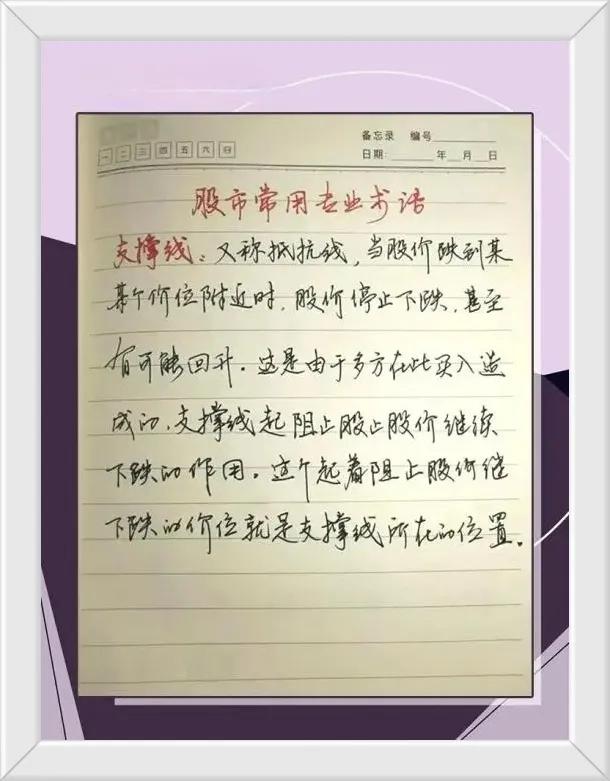 备忘录 编号
一 二 三 四 五 六 日
日期: 年 月 日
股市常用专业术语
支撑线：又称抵抗线，当股价跌到某
某个价位附近时，股价停止下跌，甚至
有可能回升。这是由于多方在此买入造
成的，支撑线起阻止股止股价继续
下跌的作用。这个起着阻止股价继
下跌的价位就是支撑线所在的位置。